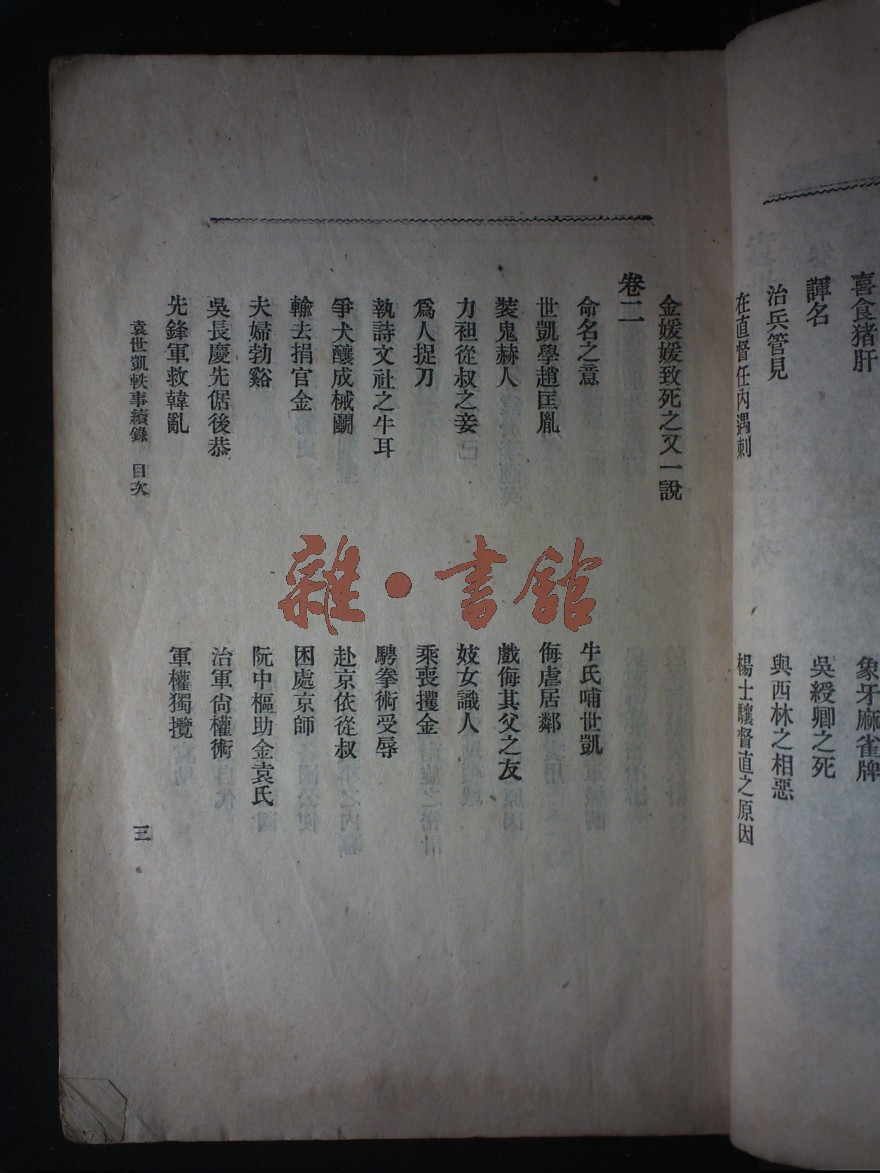 喜食猪肝
象牙麻雀牌
諢名
吳綬卿之死
治兵管見
與西林之相惡
在直督任內遇刺
楊士驤督直之原因
金媛媛致死之又一說
卷二
命名之意
牛氏哺世凱
世凱學趙匡胤
侮虐居鄰
裝鬼赫人
戲侮其父之友
力袒從叔之妾
妓女識人
爲人捉刀
乘喪攫金
執詩文社之牛耳
騁拳術受辱
爭犬釀成械鬭
赴京依從叔
輸去捐官金
困處京師
夫婦勃谿
阮中樞助金袁氏
吳長慶先倨後恭
治軍尙權術
先鋒軍救韓亂
軍權獨攬
袁世凱軼事續錄 目次
三
雜·書館